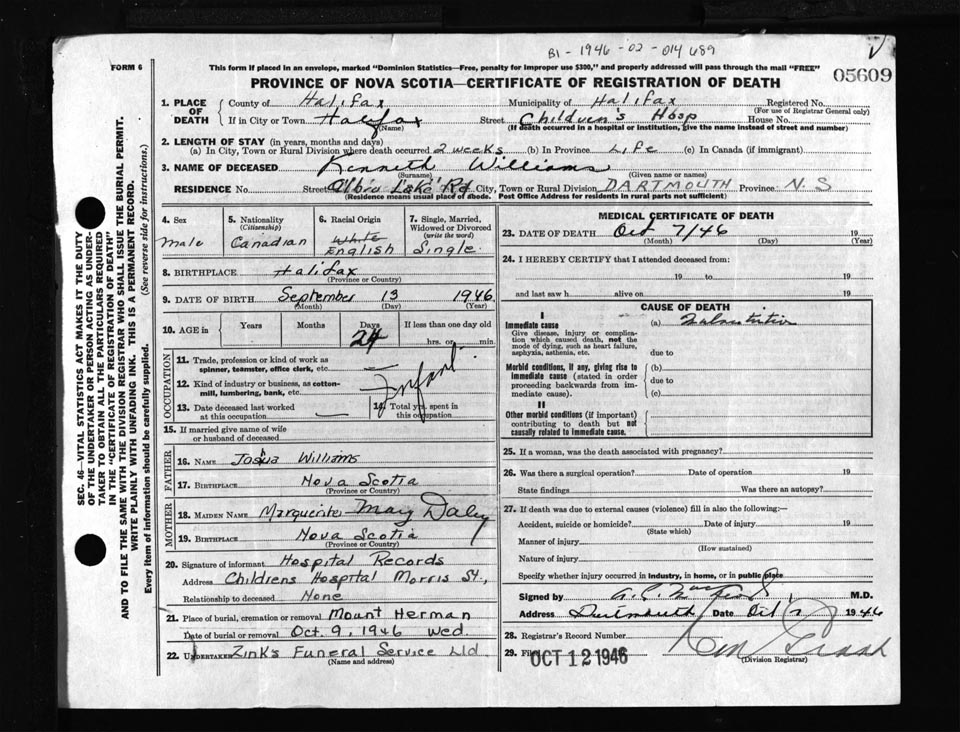 B1 - 1946 - 02 - 014689
FORM 6
This form if placed in an envelope, marked "Dominion Statistics—Free, penalty for improper use $300," and properly addressed will pass through the mail "FREE"
05609
PROVINCE OF NOVA SCOTIA—CERTIFICATE OF REGISTRATION OF DEATH
1. PLACE OF DEATH
County of Halifax Municipality of Halifax Registered No.
(For use of Registrar General only)
If in City or Town Halifax Street Children's Hosp House No.
(Name) (If death occurred in a hospital or institution, give the name instead of street and number)
2. LENGTH OF STAY (in years, months and days)
(a) In City, Town or Rural Division where death occurred 2 weeks (b) In Province Life (c) In Canada (if immigrant)
3. NAME OF DECEASED Kenneth Williams
(Surname) (Given name or names)
RESIDENCE No. Street Albro Lake Rd City, Town or Rural Division DARTMOUTH Province N.S
(Residence means usual place of abode. Post Office Address for residents in rural parts not sufficient)
4. Sex
Male
5. Nationality
(Citizenship)
Canadian
6. Racial Origin
White
English
7. Single, Married, Widowed or Divorced
(write the word)
Single
8. BIRTHPLACE Halifax
(Province or Country)
9. DATE OF BIRTH September 13 1946
(Month) (Day) (Year)
10. AGE in
Years Months Days If less than one day old
24 hrs. or min.
OCCUPATION
11. Trade, profession or kind of work as
spinner, teamster, office clerk, etc.
12. Kind of industry or business, as cotton-
mill, lumbering, bank, etc.
Infant
13. Date deceased last worked
at this occupation
14. Total yrs. spent in
this occupation
15. If married give name of wife
or husband of deceased
FATHER
16. NAME Joshua Williams
17. BIRTHPLACE Nova Scotia
(Province or Country)
MOTHER
18. MAIDEN NAME Marguerite May Daley
19. BIRTHPLACE Nova Scotia
(Province or Country)
20. Signature of informant Hospital Records
Address Childrens Hospital Morris St.,
Relationship to deceased None
21. Place of burial, cremation or removal Mount Herman
Date of burial or removal Oct. 9, 1946 Wed.
22. UNDERTAKER Zink's Funeral Service Ltd
(Name and address)
MEDICAL CERTIFICATE OF DEATH
23. DATE OF DEATH Oct 7/46 19
(Month) (Day) (Year)
24. I HEREBY CERTIFY that I attended deceased from:
19 to 19
and last saw h alive on 19
CAUSE OF DEATH
I
Immediate cause
Give disease, injury or complica-
tion which caused death, not the
mode of dying, such as heart failure,
asphyxia, asthenia, etc.
(a)
due to
Morbid conditions, if any, giving rise to
immediate cause (stated in order
proceeding backwards from im-
mediate cause).
(b)
due to
(c)
II
Other morbid conditions (if important)
contributing to death but not
causally related to immediate cause.
25. If a woman, was the death associated with pregnancy?
26. Was there a surgical operation? Date of operation 19
State findings Was there an autopsy?
27. If death was due to external causes (violence) fill in also the following:—
Accident, suicide or homicide? Date of injury 19
(State which)
Manner of injury
(How sustained)
Nature of injury
Specify whether injury occurred in industry, in home, or in public place
Signed by M.D.
Address Dartmouth Date Oct 7 1946
28. Registrar's Record Number
29. Filed OCT 12 1946
(Division Registrar)
SEC. 46—VITAL STATISTICS ACT MAKES IT THE DUTY
OF THE UNDERTAKER OR PERSON ACTING AS UNDER-
TAKER TO OBTAIN ALL THE PARTICULARS REQUIRED
IN THE "CERTIFICATE OF REGISTRATION OF DEATH"
AND TO FILE THE SAME WITH THE DIVISION REGISTRAR WHO SHALL ISSUE THE BURIAL PERMIT.
WRITE PLAINLY WITH UNFADING INK. THIS IS A PERMANENT RECORD.
Every item of information should be carefully supplied. (See reverse side for instructions.)